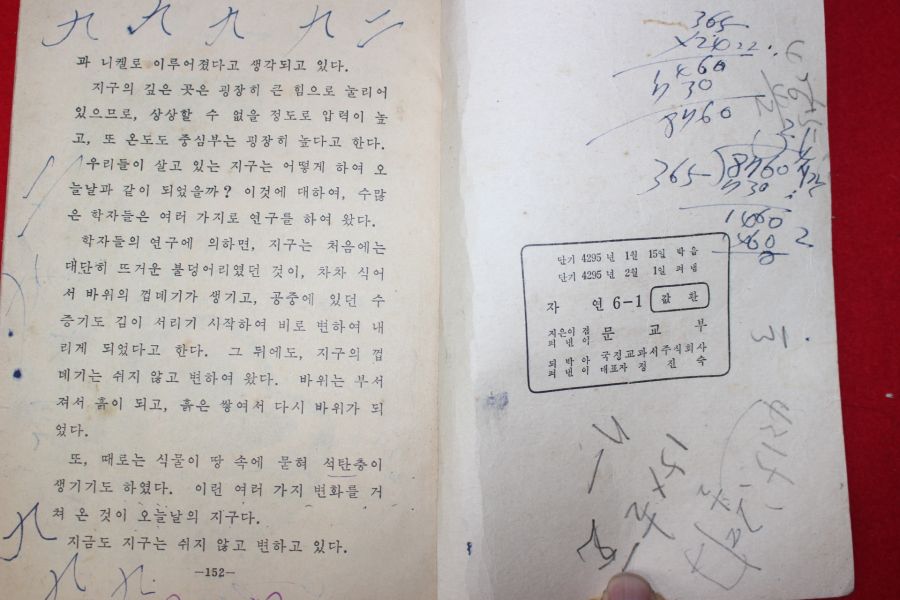 九 九 九 九 二
과 니켈로 이루어졌다고 생각되고 있다.
지구의 깊은 곳은 굉장히 큰 힘으로 눌리어
있으므로, 상상할 수 없을 정도로 압력이 높
고, 또 온도도 중심부는 굉장히 높다고 한다.
우리들이 살고 있는 지구는 어떻게 하여 오
늘날과 같이 되었을까? 이것에 대하여, 수많
은 학자들은 여러 가지로 연구를 하여 왔다.
학자들의 연구에 의하면, 지구는 처음에는
대단히 뜨거운 불덩어리였던 것이, 차차 식어
서 바위의 껍데기가 생기고, 공중에 있던 수
증기도 김이 서리기 시작하여 비로 변하여 내
리게 되었다고 한다. 그 뒤에도, 지구의 껍
데기는 쉬지 않고 변하여 왔다. 바위는 부서
져서 흙이 되고, 흙은 쌓여서 다시 바위가 되
었다.
또, 때로는 식물이 땅 속에 묻혀 석탄층이
생기기도 하였다. 이런 여러 가지 변화를 거
쳐 온 것이 오늘날의 지구다.
지금도 지구는 쉬지 않고 변하고 있다.
—152—
365
×24
1460
730
8760
365)8760
730
1460
1460
0
단기 4295 년 1월 15일 박음
단기 4295 년 2월 1일 펴냄
자 연 6-1 값 환
지은이 겸 펴낸이 문 교 부
되박아 펴낸이 국정교과서주식회사
대표자 정 진 숙